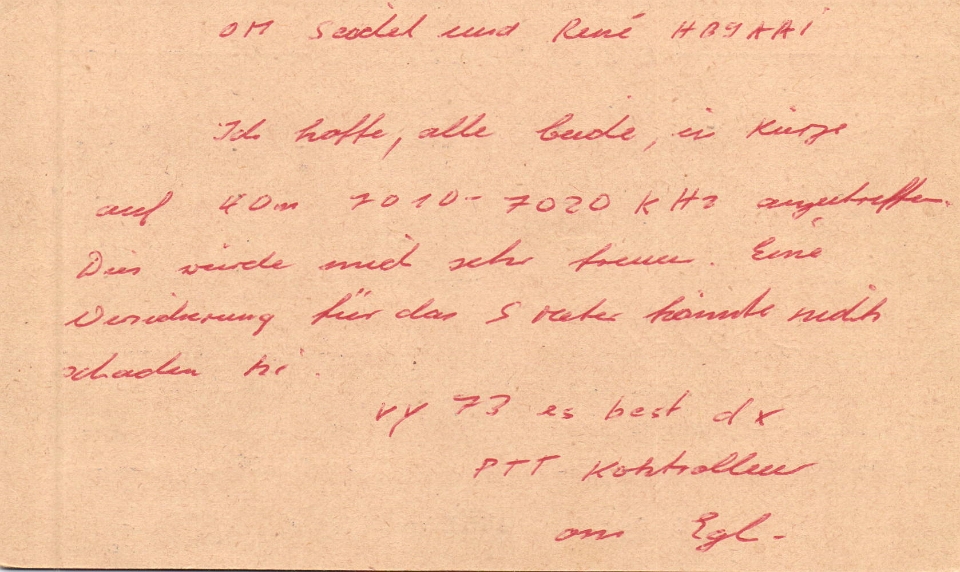 OM Seidel und René HB9AAI
Ich hoffe, alle beide, in Kürze
auf 40m 7010-7020 KHz anzutreffen.
Dies würde mich sehr freuen. Eine
Versicherung für das S Meter könnte nicht
schaden hi.
vy 73 es best dx
PTT Kontrolleur
om Egl-